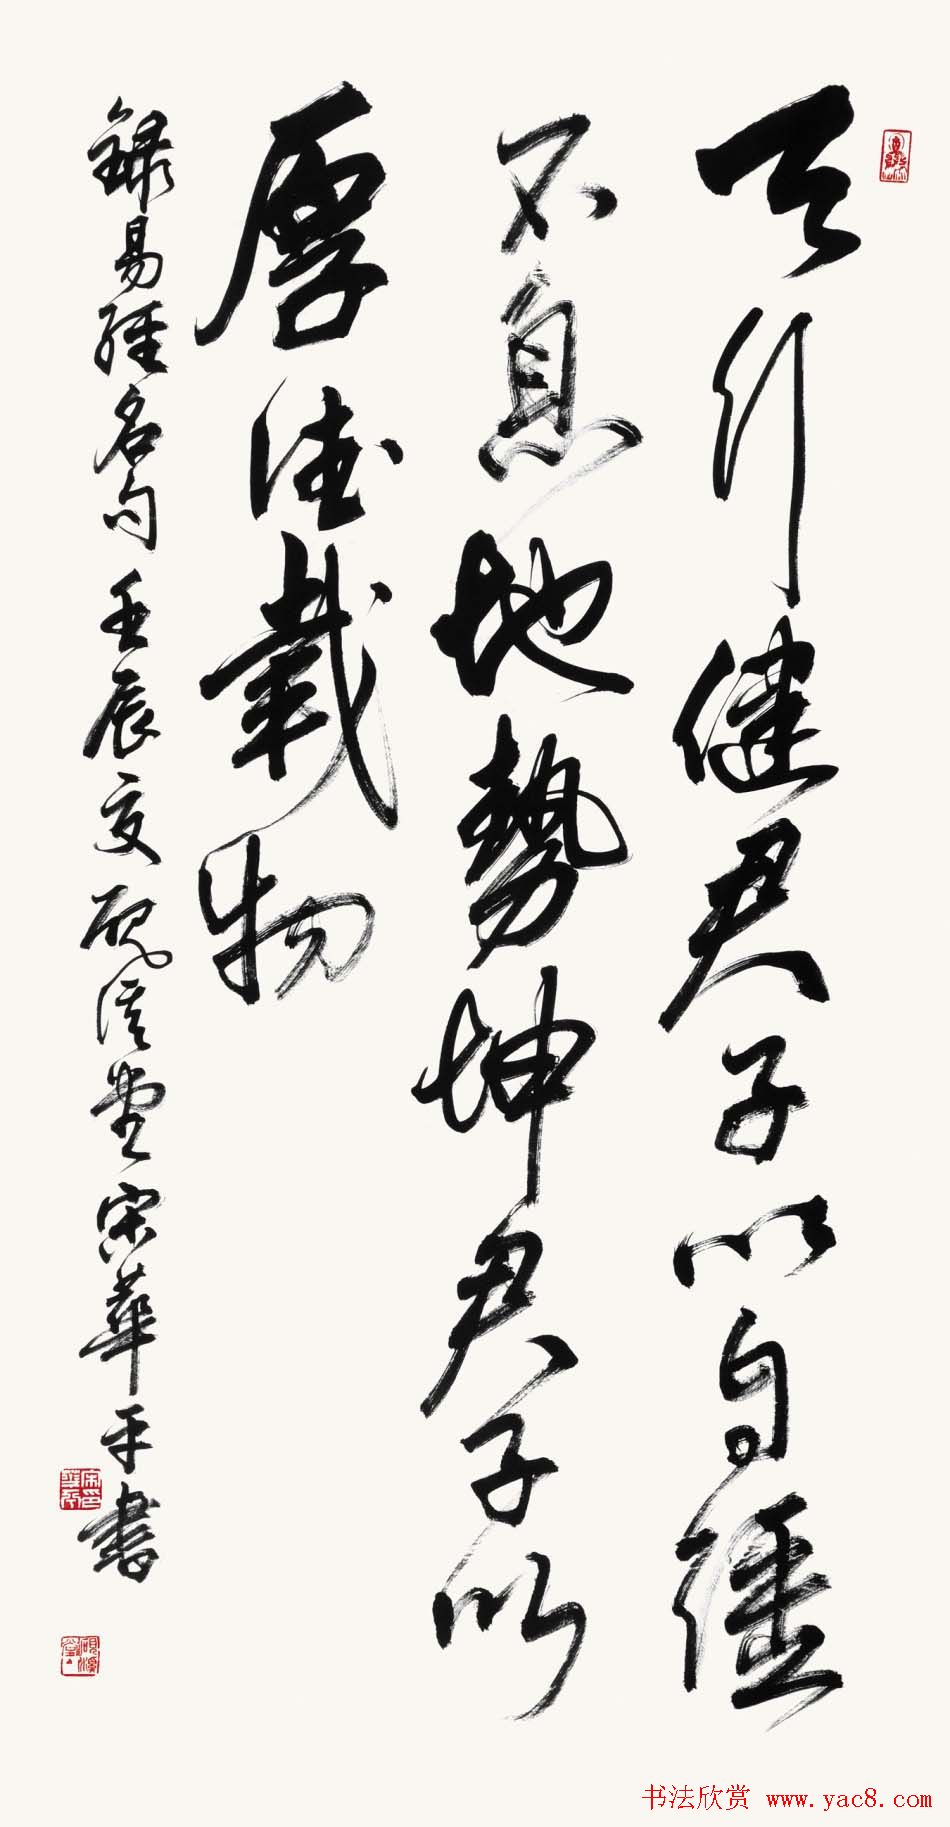 天行健君子以自彊
不息地勢坤君子以
厚德載物
錄易經名句壬辰夏硯溪堂宋華平書
书法欣赏 www.yac8.com